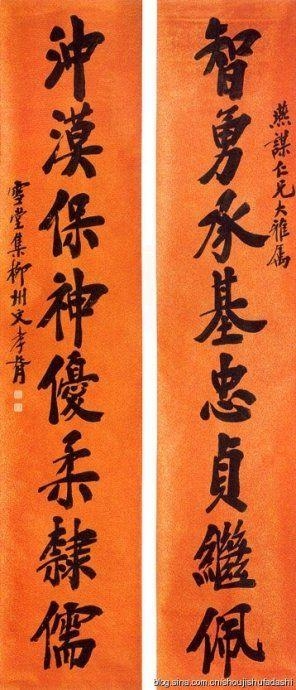 燕謀仁兄大雅屬
智勇承基忠貞繼佩
沖漠保神優柔隸儒
雪堂集柳州文孝胥
blog.sina.com.cn/shoujishufadashi